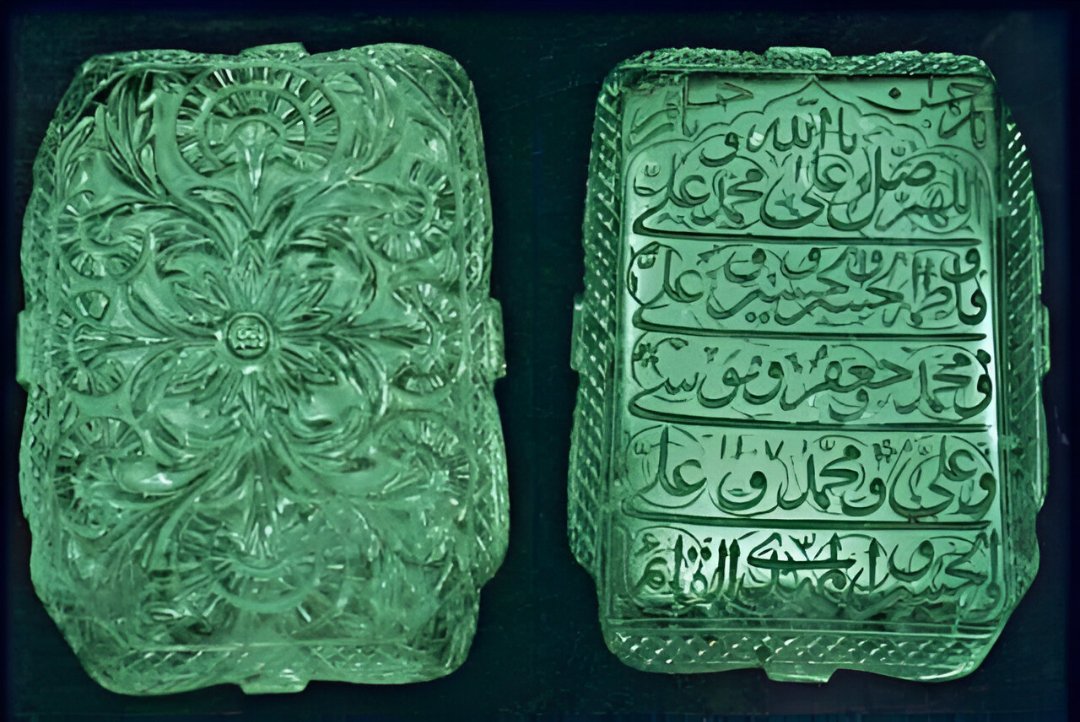 يا رحمن
يا الله
اللهم صل على محمد و علي
و فاطمة و الحسن و الحسين و علي
و محمد و جعفر و موسى
و علي و محمد و علي
و الحسن المهدي القائم